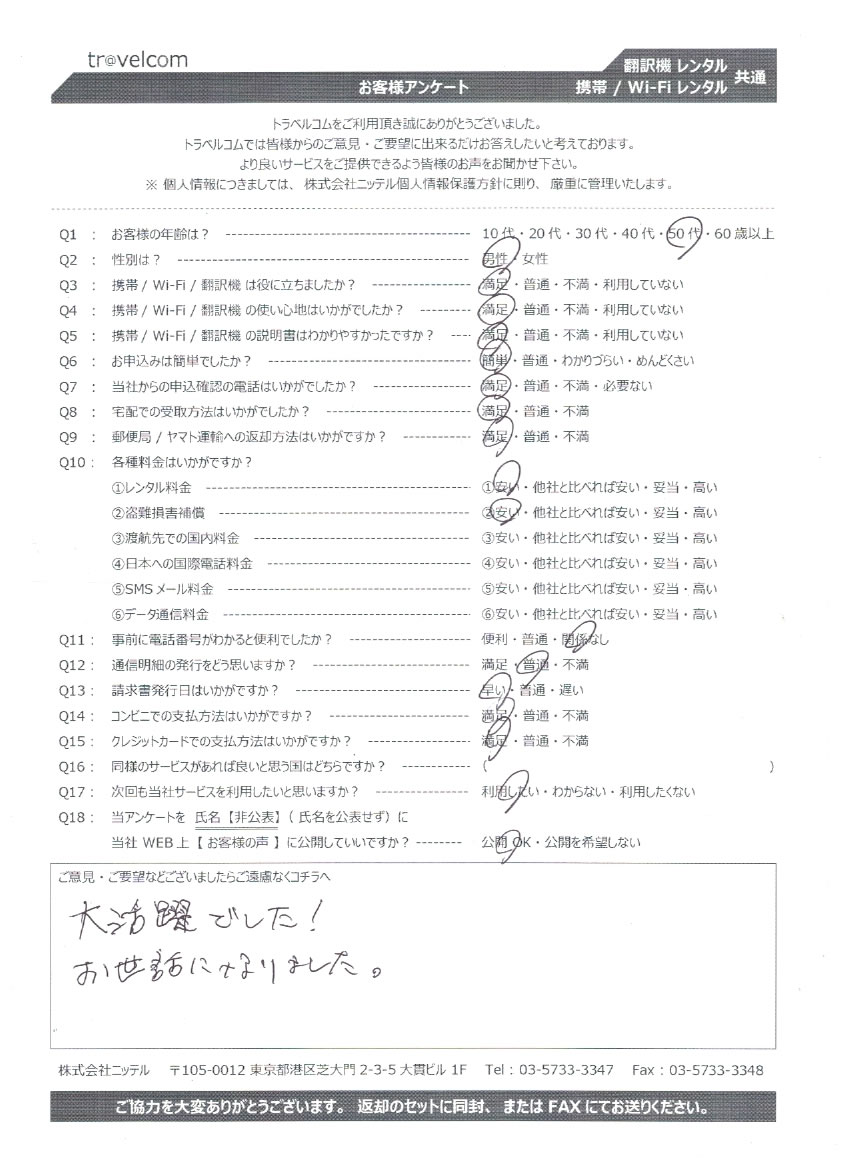 tr@velcom
翻訳機 レンタル
お客様アンケート 携帯 / Wi-Fi レンタル 共通
トラベルコムをご利用頂き誠にありがとうございました。
トラベルコムでは皆様からのご意見・ご要望に出来るだけお答えしたいと考えております。
より良いサービスをご提供できるよう皆様のお声をお聞かせ下さい。
※ 個人情報につきましては、 株式会社ニッテル個人情報保護方針に則り、 厳重に管理いたします。
Q1 : お客様の年齢は? 10代・20代・30代・40代・50代・60歳以上
Q2 : 性別は? 男性・女性
Q3 : 携帯 / Wi-Fi / 翻訳機 は役に立ちましたか? 満足・普通・不満・利用していない
Q4 : 携帯 / Wi-Fi / 翻訳機 の使い心地はいかがでしたか? 満足・普通・不満・利用していない
Q5 : 携帯 / Wi-Fi / 翻訳機 の説明書はわかりやすかったですか? 満足・普通・不満・利用していない
Q6 : お申込みは簡単でしたか? 簡単・普通・わかりづらい・めんどくさい
Q7 : 当社からの申込確認の電話はいかがでしたか? 満足・普通・不満・必要ない
Q8 : 宅配での受取方法はいかがでしたか? 満足・普通・不満
Q9 : 郵便局 / ヤマト運輸への返却方法はいかがですか? 満足・普通・不満
Q10 : 各種料金はいかがですか?
①レンタル料金 ①安い・他社と比べれば安い・妥当・高い
②盗難損害補償 ②安い・他社と比べれば安い・妥当・高い
③渡航先での国内料金 ③安い・他社と比べれば安い・妥当・高い
④日本への国際電話料金 ④安い・他社と比べれば安い・妥当・高い
⑤SMSメール料金 ⑤安い・他社と比べれば安い・妥当・高い
⑥データ通信料金 ⑥安い・他社と比べれば安い・妥当・高い
Q11 : 事前に電話番号がわかると便利でしたか? 便利・普通・関係なし
Q12 : 通信明細の発行をどう思いますか? 満足・普通・不満
Q13 : 請求書発行日はいかがですか? 早い・普通・遅い
Q14 : コンビニでの支払方法はいかがですか? 満足・普通・不満
Q15 : クレジットカードでの支払方法はいかがですか? 満足・普通・不満
Q16 : 同様のサービスがあれば良いと思う国はどちらですか? ( )
Q17 : 次回も当社サービスを利用したいと思いますか? 利用したい・わからない・利用したくない
Q18 : 当アンケートを 氏名【非公表】( 氏名を公表せず) に
当社 WEB 上【 お客様の声 】に公開していいですか? 公開 OK・公開を希望しない
ご意見・ご要望などございましたらご遠慮なくコチラへ
大活躍でした!
お世話になりました。
株式会社ニッテル 〒105-0012 東京都港区芝大門 2-3-5 大貫ビル 1F Tel : 03-5733-3347 Fax : 03-5733-3348
ご協力を大変ありがとうございます。 返却のセットに同封、 または FAX にてお送りください。